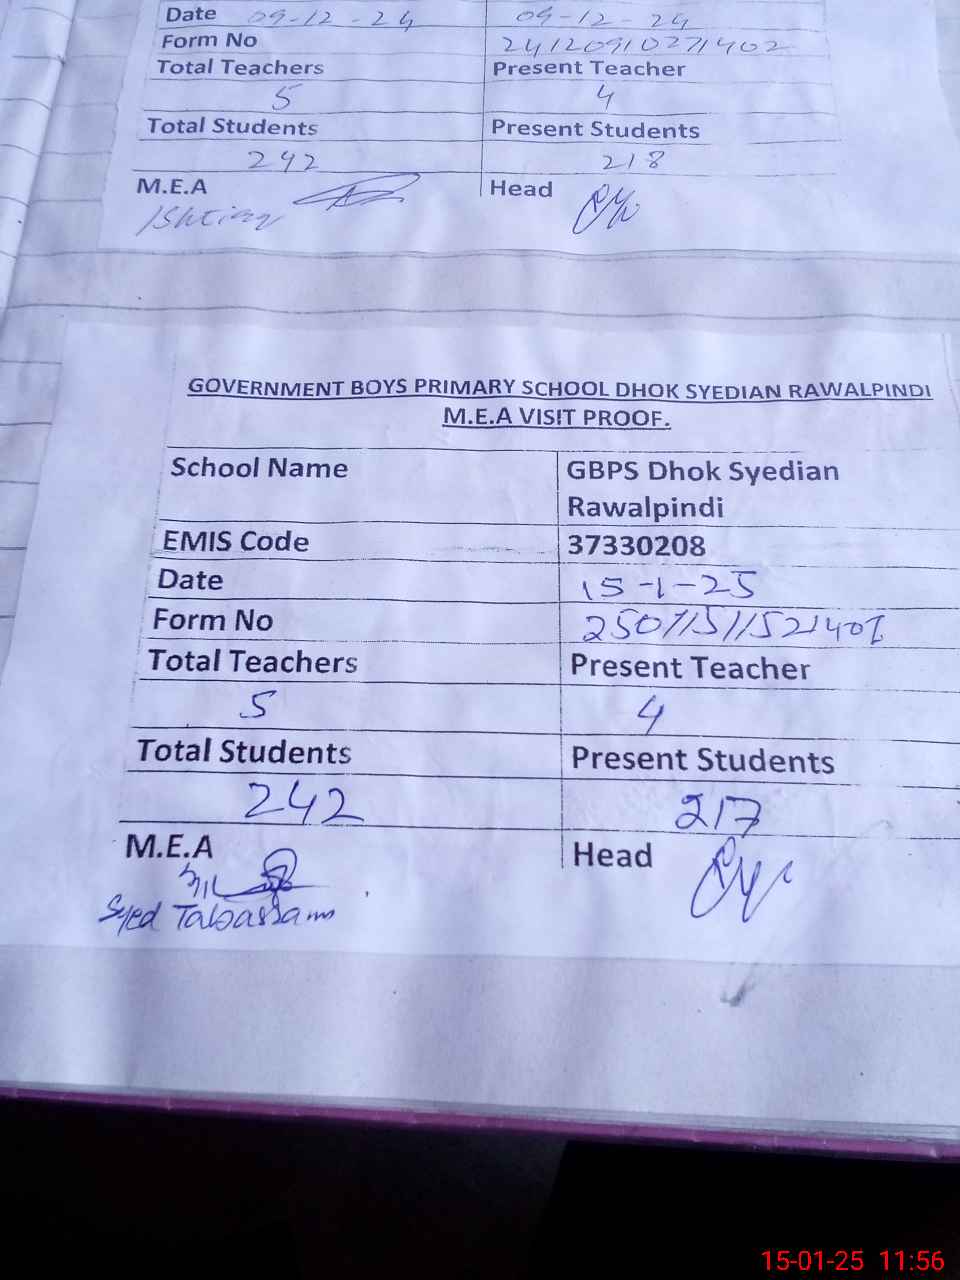 Date 09-12-24 09-12-24
Form No 24120910271402
Total Teachers Present Teacher
5 4
Total Students Present Students
242 218
M.E.A Head
Ishtiaq
GOVERNMENT BOYS PRIMARY SCHOOL DHOK SYEDIAN RAWALPINDI
M.E.A VISIT PROOF.
School Name GBPS Dhok Syedian
Rawalpindi
EMIS Code 37330208
Date 15-1-25
Form No
Total Teachers Present Teacher
5 4
Total Students Present Students
242 217
M.E.A Head
Syed Tabassam
15-01-25 11:56